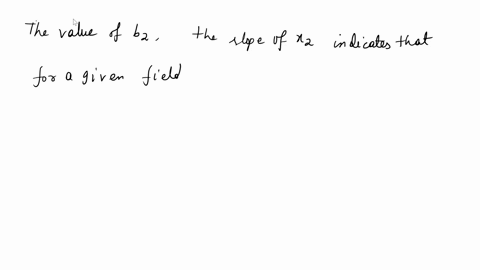 The value of b2, the slope of x2 indicates that
for a given field